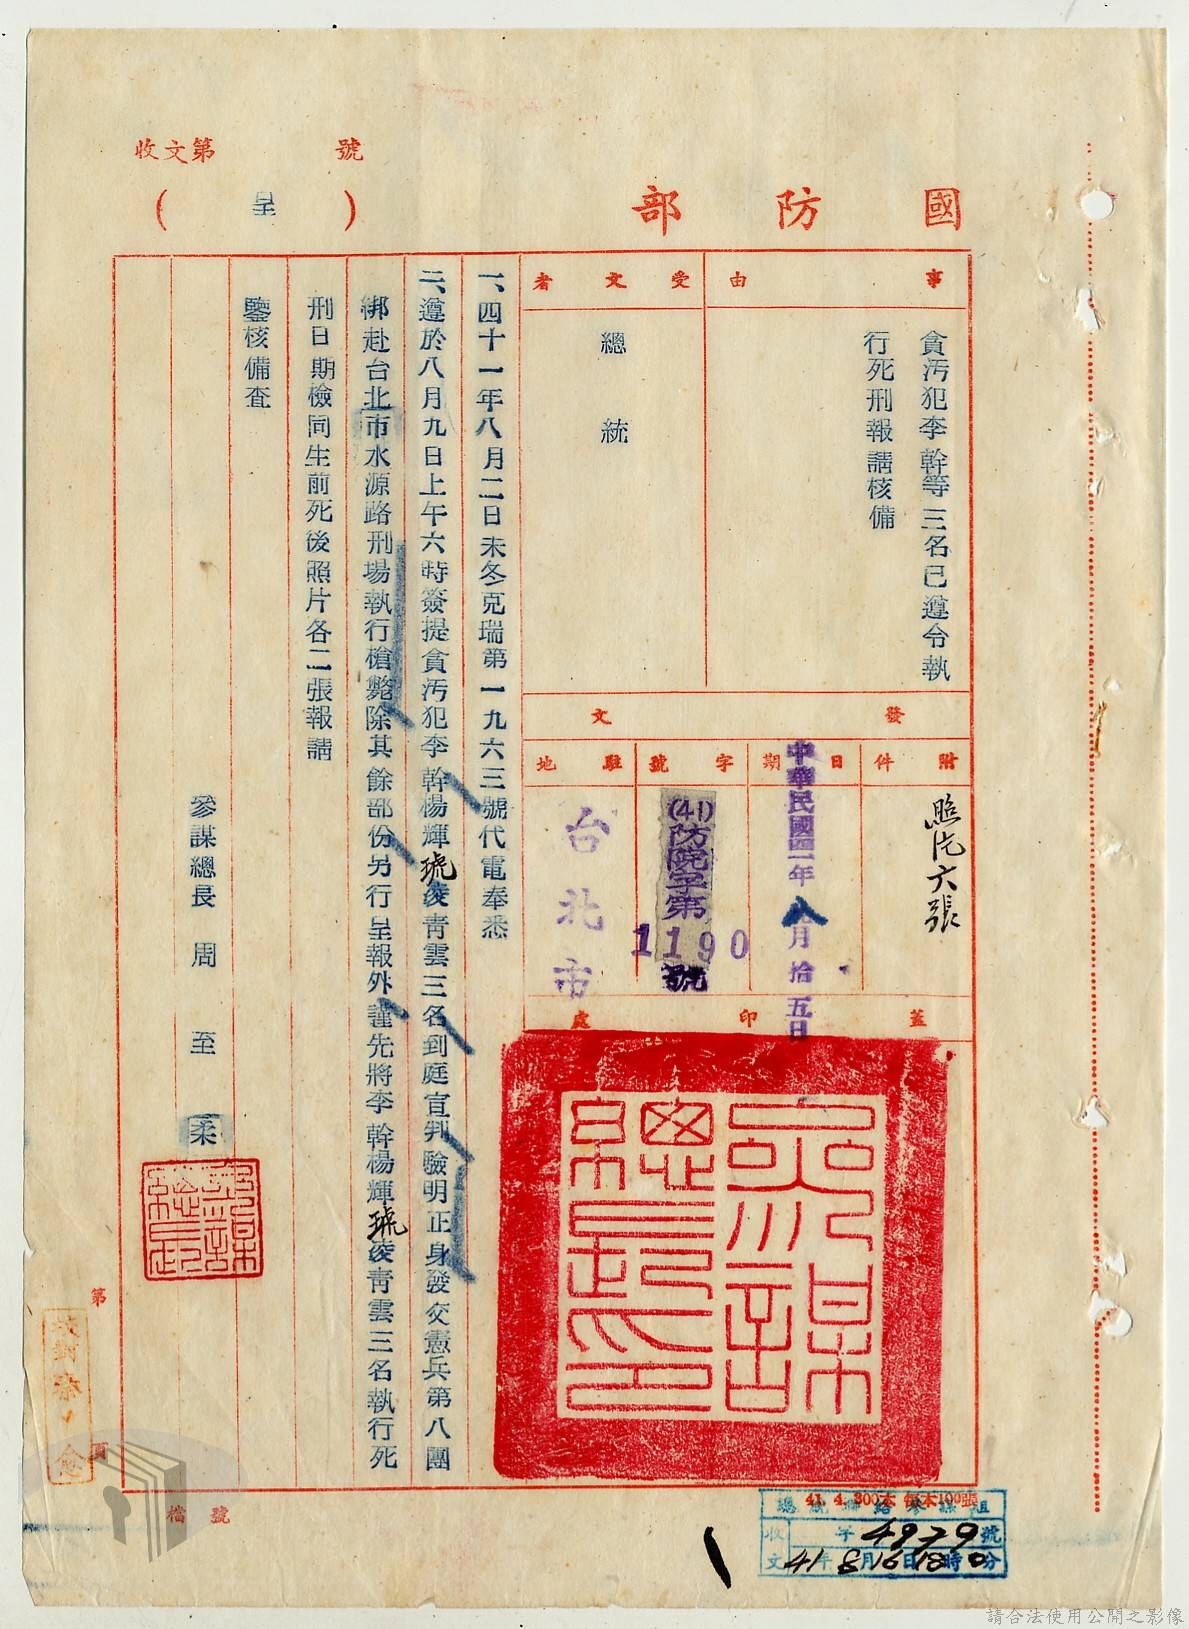 收文第　　　號
國防部
（呈）
事由
貪污犯李幹等三名已遵令執
行死刑報請核備
受文者
總統
發文
附件
照片六張
日期
中華民國四一年八月拾五日
字號
(41)防院字第
1190
號
駐地
台北市
蓋印處
參謀總長印
一、四十一年八月二日未冬克瑞第一九六三號代電奉悉
二、遵於八月九日上午六時簽提貪污犯李幹楊輝琥凌青雲三名到庭宣判驗明正身發交憲兵第八團
綁赴台北市水源路刑場執行槍斃除其餘部份另行呈報外謹先將李幹楊輝琥凌青雲三名執行死
刑日期檢同生前死後照片各二張報請
鑒核備查
參謀總長　周至柔
第
頁
檔號
41. 4. 300本 每本100張
收文 字4979號
41年8月16日18時0分
請合法使用公開之影像